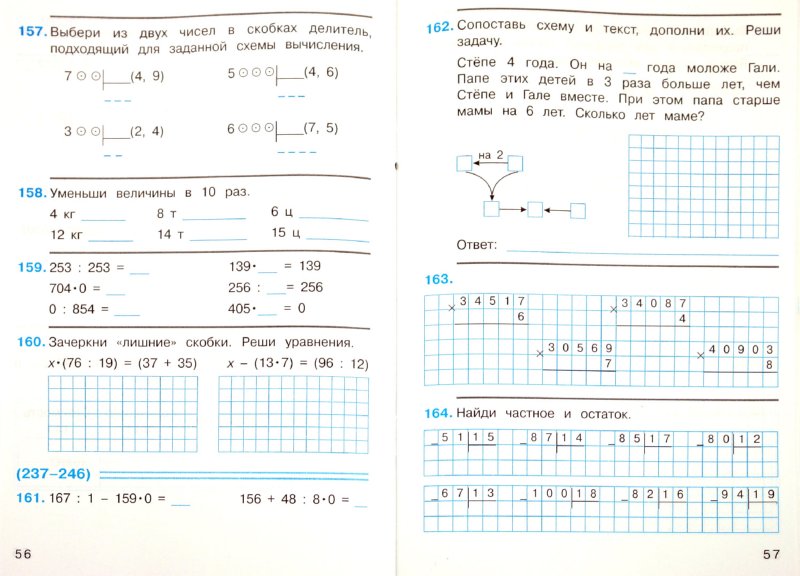 157. Выбери из двух чисел в скобках делитель,
подходящий для заданной схемы вычисления.
7 ⊙ ⊙ (4, 9) 5 ⊙ ⊙ ⊙ (4, 6)
3 ⊙ ⊙ (2, 4) 6 ⊙ ⊙ ⊙ (7, 5)
158. Уменьши величины в 10 раз.
4 кг ____ 8 т ____ 6 ц ____
12 кг ____ 14 т ____ 15 ц ____
159. 253 : 253 = __ 139 · __ = 139
704 · 0 = __ 256 : __ = 256
0 : 854 = __ 405 · __ = 0
160. Зачеркни «лишние» скобки. Реши уравнения.
x · (76 : 19) = (37 + 35) x – (13 · 7) = (96 : 12)
(237–246)
161. 167 : 1 – 159 · 0 = __ 156 + 48 : 8 · 0 = __
56
162. Сопоставь схему и текст, дополни их. Реши
задачу.
Стёпе 4 года. Он на __ года моложе Гали.
Папе этих детей в 3 раза больше лет, чем
Стёпе и Гале вместе. При этом папа старше
мамы на 6 лет. Сколько лет маме?
на 2
Ответ: ____
163.
× 34517 × 34087
6 4
× 30569 × 40903
7 8
164. Найди частное и остаток.
– 51 | 15 – 87 | 14 – 85 | 17 – 80 | 12
– 67 | 13 – 100 | 18 – 82 | 16 – 94 | 19
57